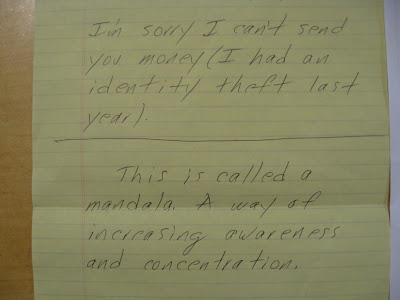 I'm sorry I can't send
you money (I had an
identity theft last
year).
This is called a
mandala. A way of
increasing awareness
and concentration.